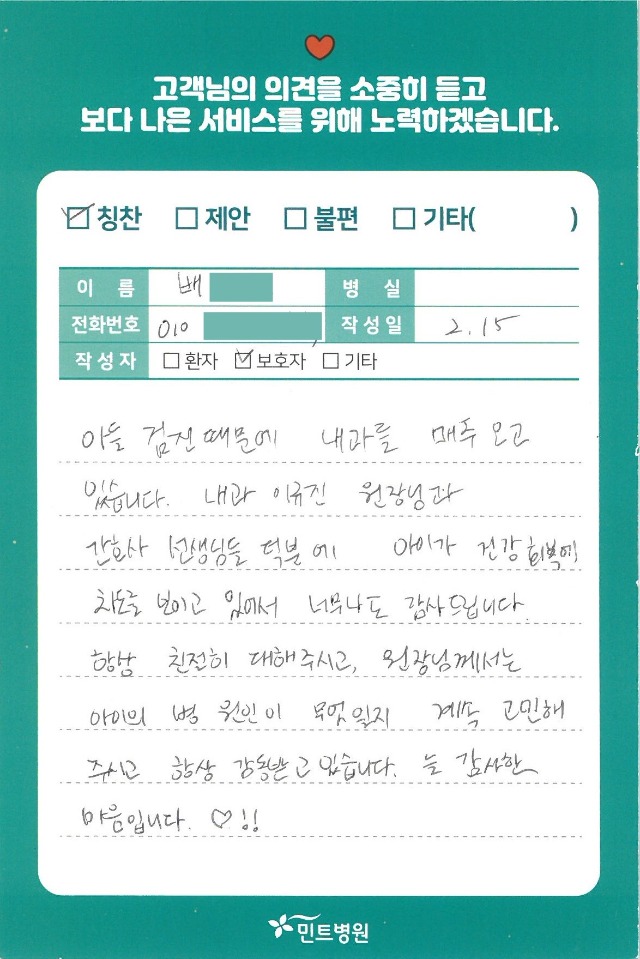 고객님의 의견을 소중히 듣고
보다 나은 서비스를 위해 노력하겠습니다.
☑ 칭찬 ☐ 제안 ☐ 불편 ☐ 기타( )
이 름 배 병 실
전화번호 010 작성일 2.15
작성자 ☐ 환자 ☑ 보호자 ☐ 기타
아들 검진때문에 내과를 매주 오고
있습니다. 내과 이규진 원장님과
간호사 선생님들 덕분에 아이가 건강 회복에
차도를 보이고 있어서 너무나도 감사드립니다.
항상 친절히 대해주시고, 원장님께서는
아이의 병 원인이 무엇일지 계속 고민해
주시고 항상 감동받고 있습니다. 늘 감사한
마음입니다. ♡!!
민트병원